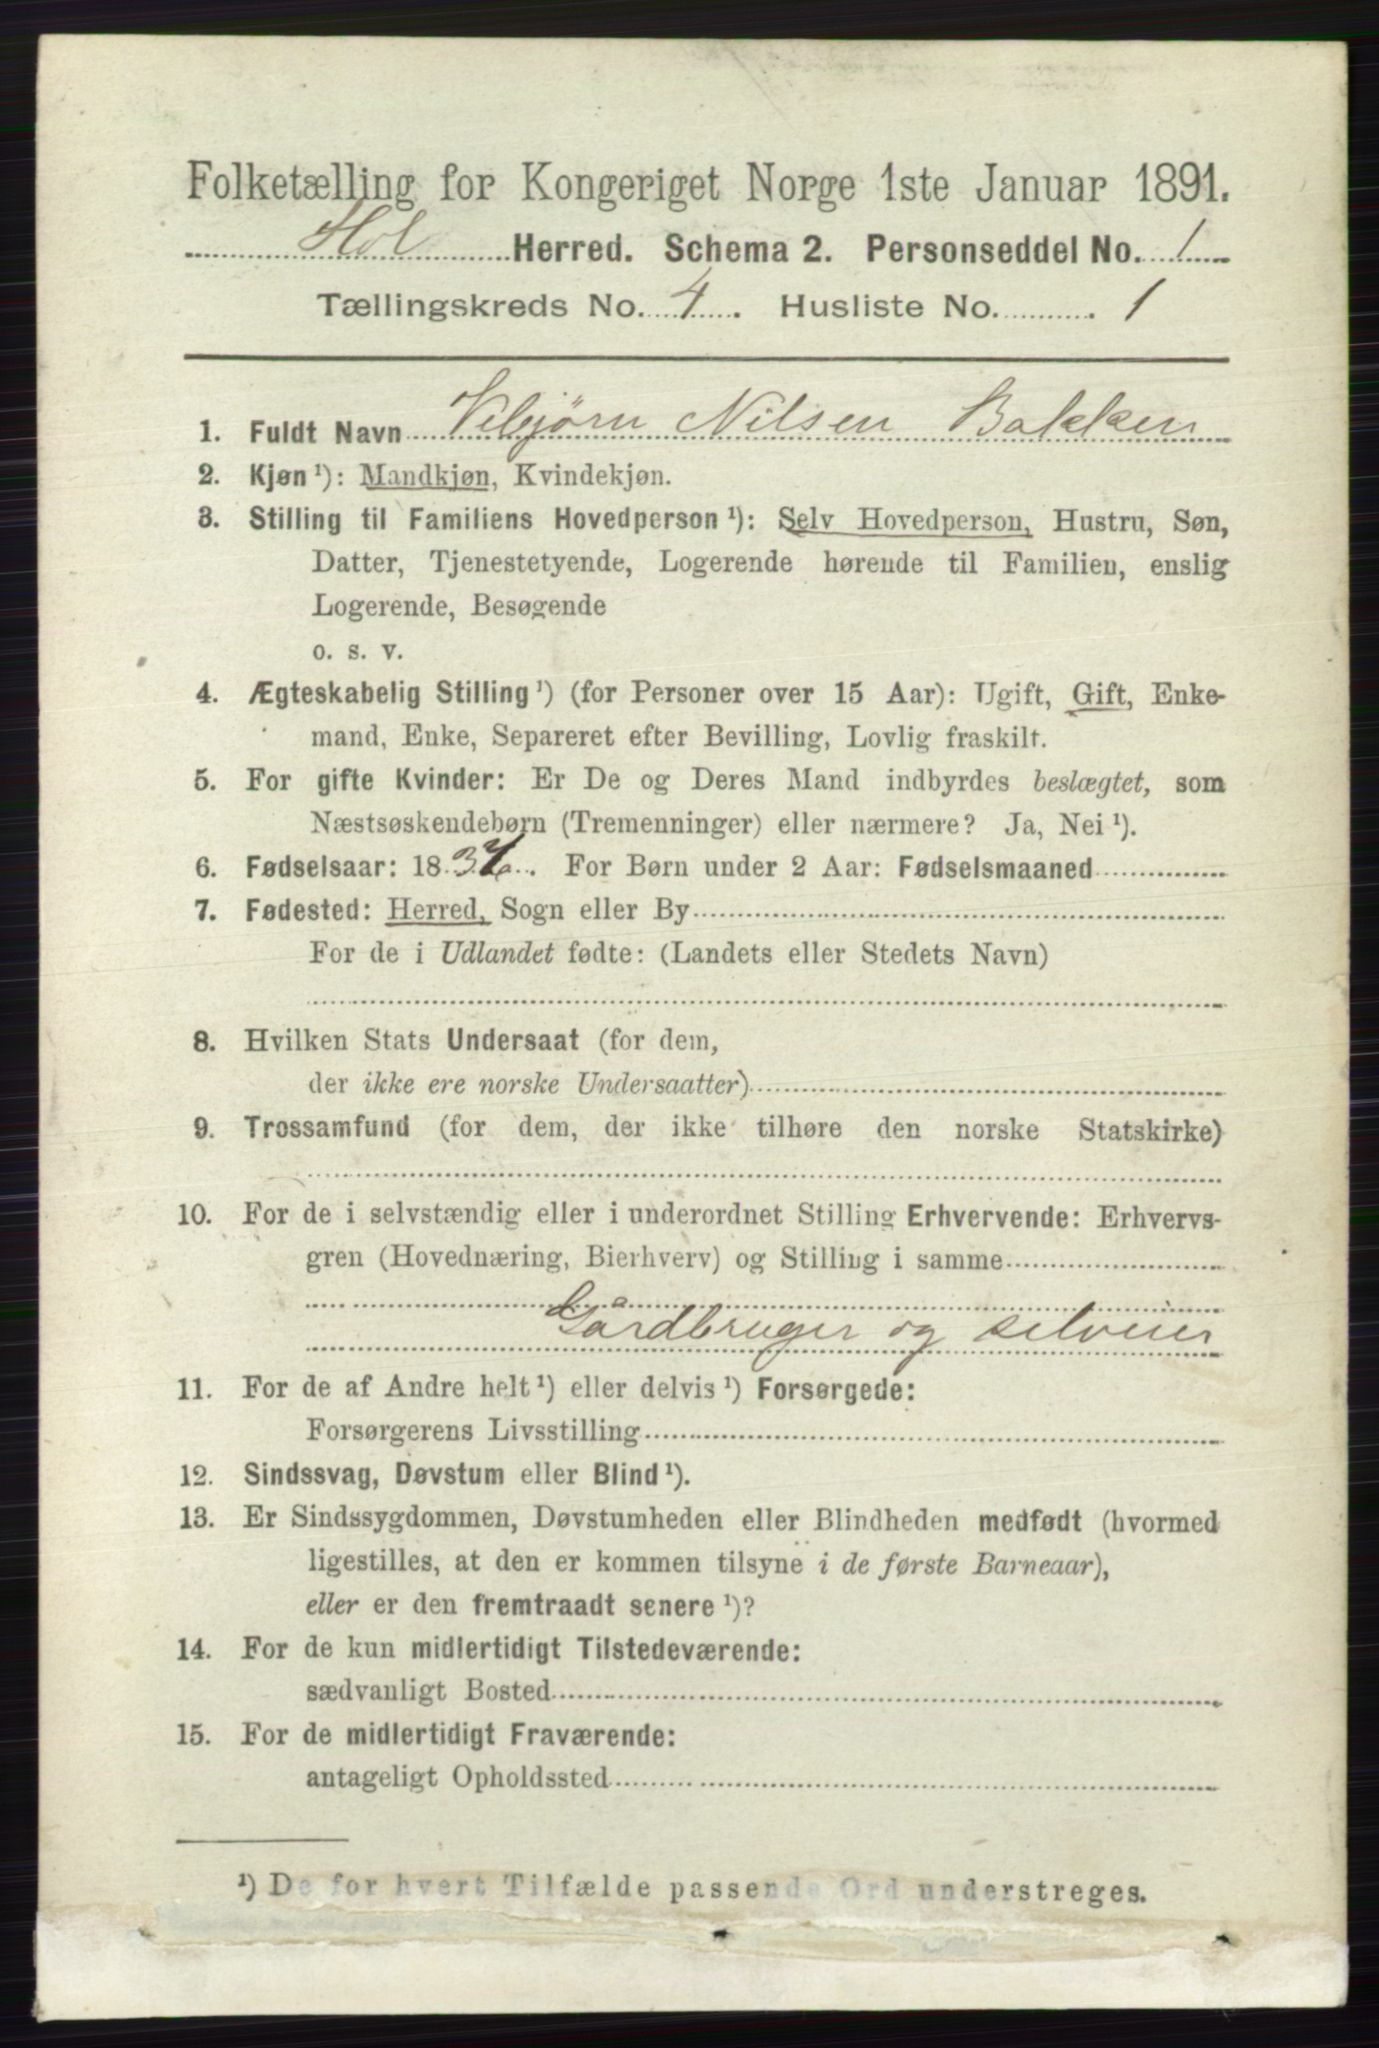 Folketælling for Kongeriget Norge 1ste Januar 1891.
Hol Herred. Schema 2. Personseddel No. 1
Tællingskreds No. 4. Husliste No. 1
1. Fuldt Navn Vebjørn Nilsen Bakken
2. Kjøn¹): Mandkjøn, Kvindekjøn.
3. Stilling til Familiens Hovedperson¹): Selv Hovedperson, Hustru, Søn,
Datter, Tjenestetyende, Logerende hørende til Familien, enslig
Logerende, Besøgende
o. s. v.
4. Ægteskabelig Stilling¹) (for Personer over 15 Aar): Ugift, Gift, Enke-
mand, Enke, Separeret efter Bevilling, Lovlig fraskilt.
5. For gifte Kvinder: Er De og Deres Mand indbyrdes beslægtet, som
Næstsøskendebørn (Tremenninger) eller nærmere? Ja, Nei¹).
6. Fødselsaar: 18 For Børn under 2 Aar: Fødselsmaaned
7. Fødested: Herred, Sogn eller By
For de i Udlandet fødte: (Landets eller Stedets Navn)
8. Hvilken Stats Undersaat (for dem,
der ikke ere norske Undersaatter)
9. Trossamfund (for dem, der ikke tilhøre den norske Statskirke)
10. For de i selvstændig eller i underordnet Stilling Erhvervende: Erhvervs-
gren (Hovednæring, Bierhverv) og Stilling i samme
Gårdbruger og selveier
11. For de af Andre helt¹) eller delvis¹) Forsørgede:
Forsørgerens Livsstilling
12. Sindssvag, Døvstum eller Blind¹).
13. Er Sindssygdommen, Døvstumheden eller Blindheden medfødt (hvormed
ligestilles, at den er kommen tilsyne i de første Barneaar),
eller er den fremtraadt senere¹)?
14. For de kun midlertidigt Tilstedeværende:
sædvanligt Bosted
15. For de midlertidigt Fraværende:
antageligt Opholdssted
¹) De for hvert Tilfælde passende Ord understreges.